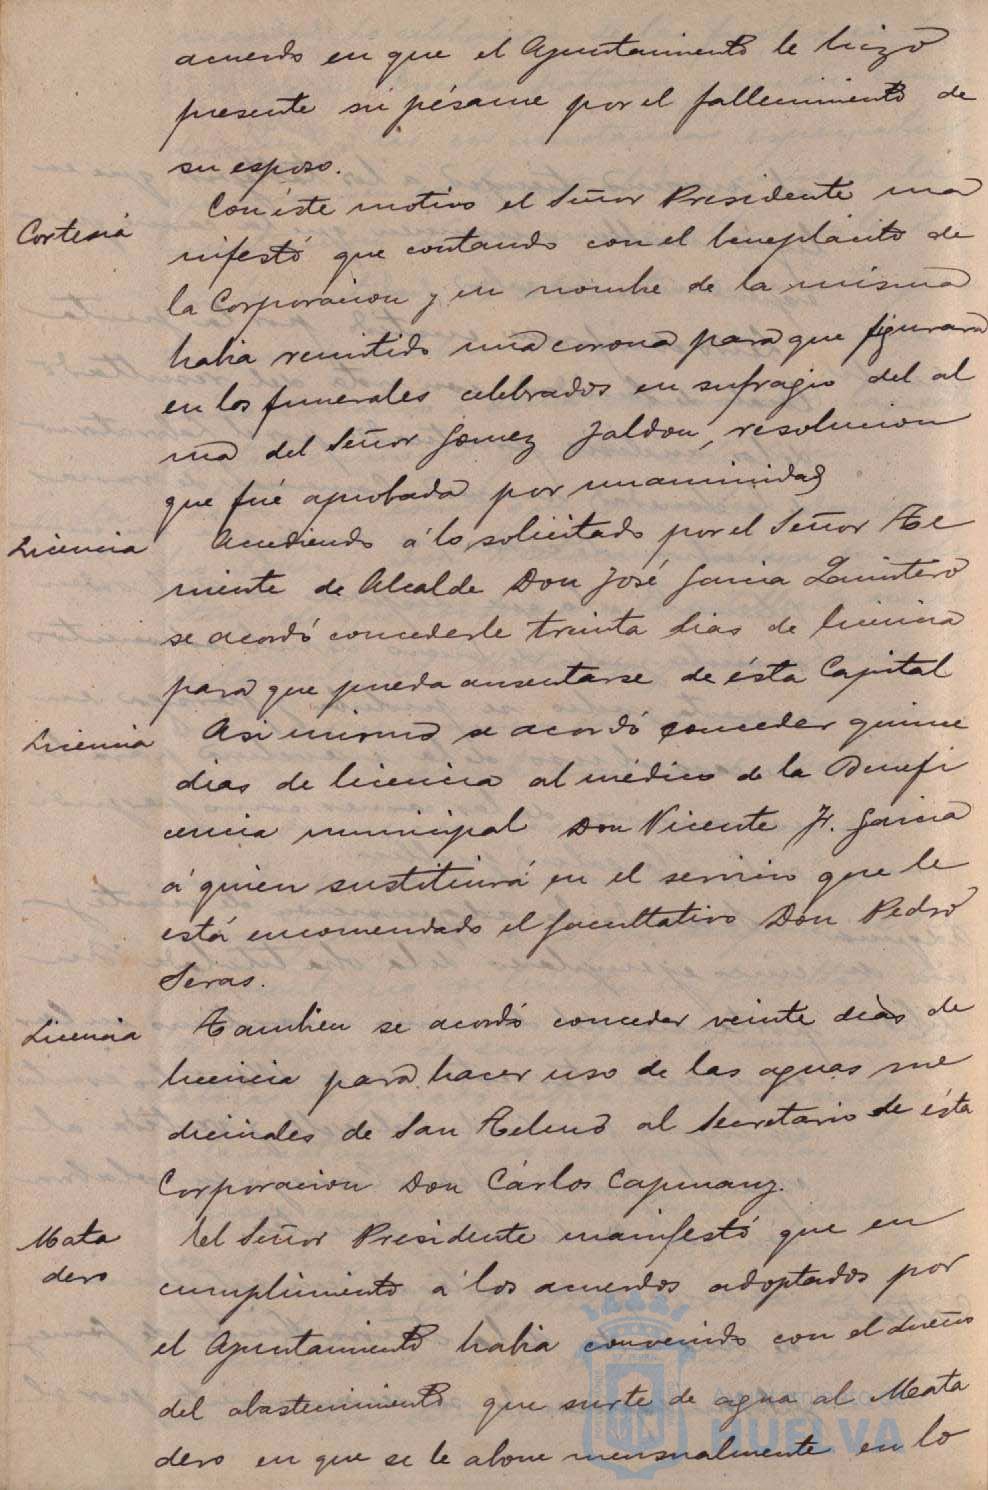 acuerdo en que el Ayuntamiento le hizo
presente su pésame por el fallecimiento de
su esposo.
Cortesia
Con éste motivo el Señor Presidente ma
nifestó que contando con el beneplácito de
la Corporacion y en nombre de la misma
habia remitido una corona para que figurara
en los funerales celebrados en sufragio del al
ma del Señor Gomez Jaldon, resolucion
que fué aprobada por unanimidad
Licencia
Accediendo á lo solicitado por el Señor Te
niente de Alcalde Don José Garcia Quintero
se acordó concederle treinta dias de licencia
para que pueda ausentarse de ésta Capital
Licencia
Asi mismo se acordó conceder quince
dias de licencia al médico de la Benefi
cencia municipal Don Vicente F. Garcia
á quien sustituirá en el servicio que le
está encomendado el facultativo Don Pedro
Seras.
Licencia
Tambien se acordó conceder veinte dias de
licencia para hacer uso de las aguas me
dicinales de San Telmo al Secretario de ésta
Corporacion Don Cárlos Capmany.
Mata
dero
El Señor Presidente manifestó que en
cumplimiento á los acuerdos adoptados por
el Ayuntamiento habia convenido con el dueño
del abastecimiento que surte de agua al Mata
dero en que se le abone mensualmente en lo
HUELVA